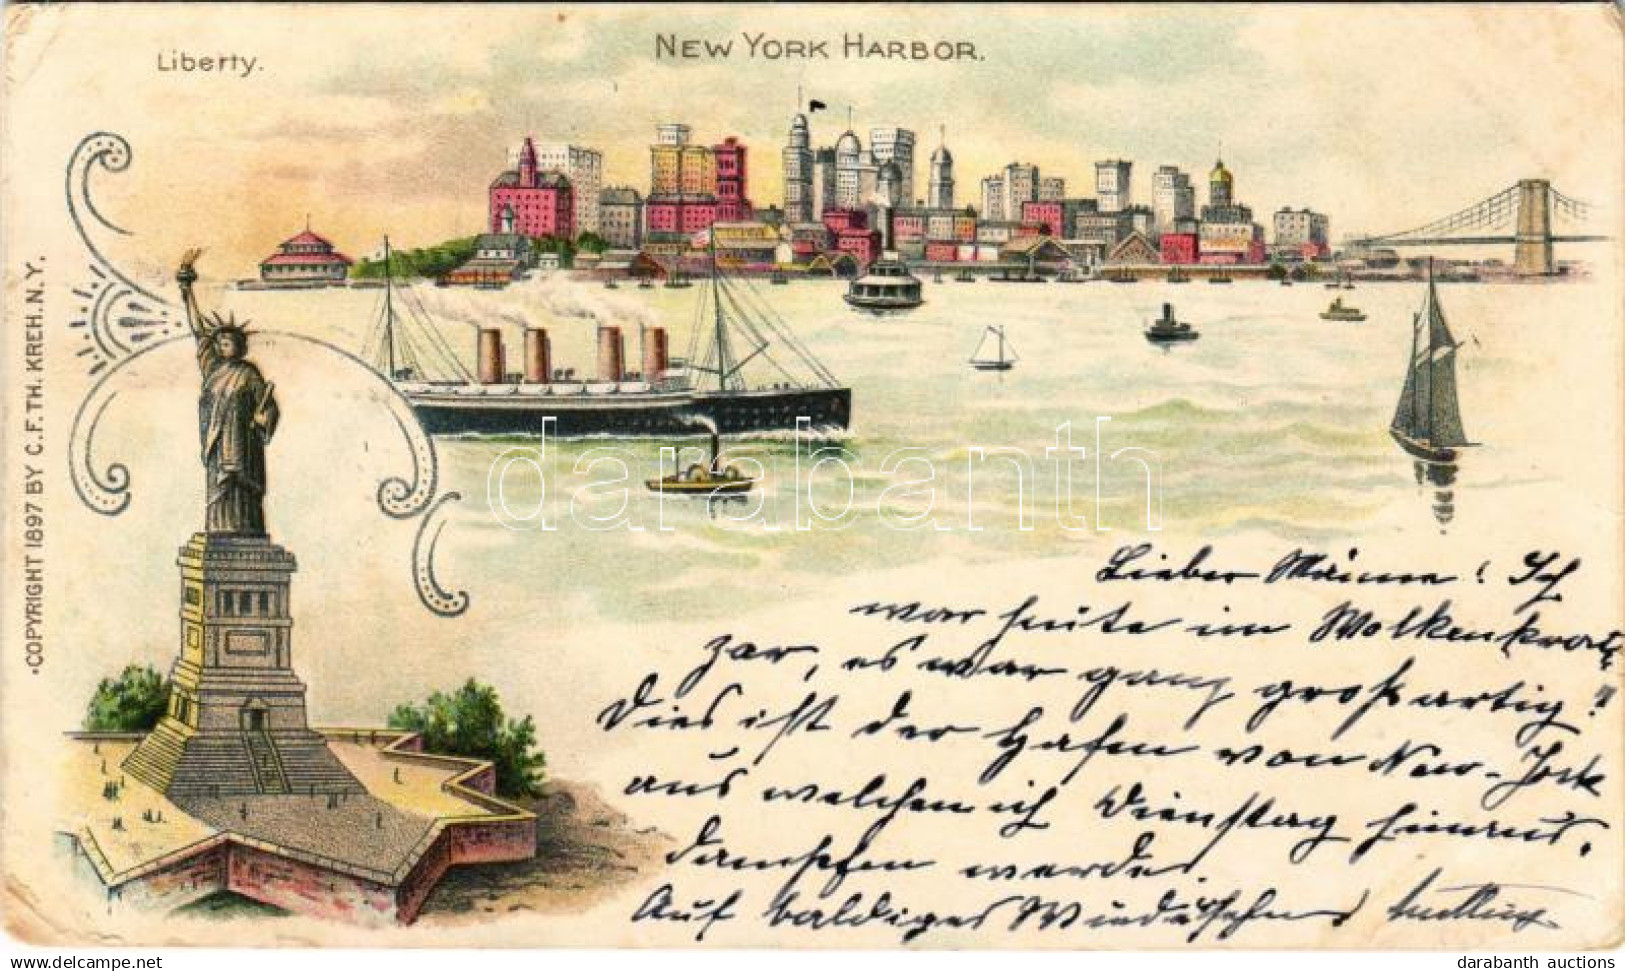 Liberty.
NEW YORK HARBOR.
·COPYRIGHT 1897 BY C.F.TH. KREH.N.Y.
darabanth
Lieber! Ich
war heute im Wolkenkrat
zer, es war ganz großartig!!
Dies ist der Hafen von New-York
aus welchen ich Dienstag hinaus,
dampfen werde.
Auf baldiges Wiedersehen
delcampe.net
darabanth auctions